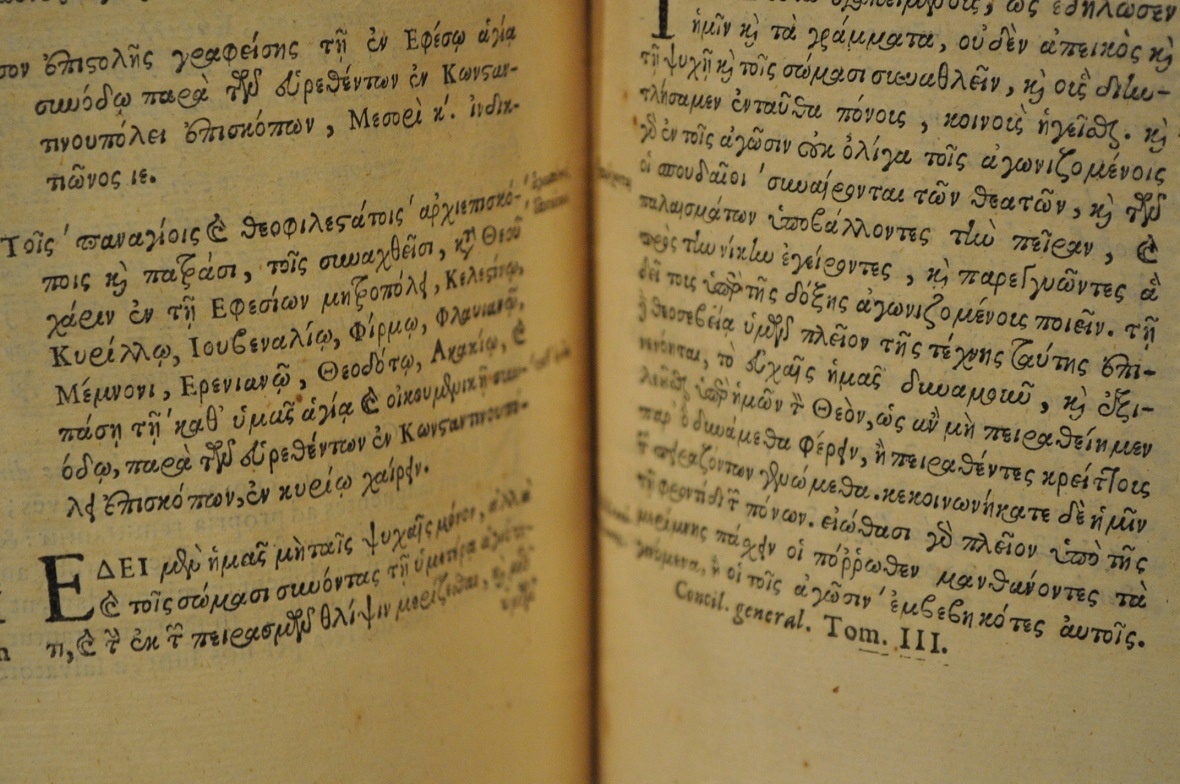 σον ἐπιστολῆς γραφείσης τῇ ἐν Ἐφέσῳ ἁγίᾳ
συνόδῳ παρὰ τῶν εὑρεθέντων ἐν Κωνσταν-
τινουπόλει ἐπισκόπων, Μεσορὶ κʹ. ἰνδικ-
τιῶνος ιε.
Τοῖς ʹ παναγίοις καὶ θεοφιλεστάτοις ʹ ἀρχιεπισκό-
ποις καὶ πατράσι, τοῖς συναχθεῖσι, κατὰ Θεοῦ
χάριν ἐν τῇ Ἐφεσίων μητροπόλει, Κελεστίνῳ,
Κυρίλλῳ, Ἰουβεναλίῳ, Φίρμῳ, Φλαυιανῷ,
Μέμνονι, Ἐρενιανῷ, Θεοδότῳ, Ἀκακίῳ, καὶ
πάσῃ τῇ καθ' ὑμᾶς ἁγίᾳ καὶ οἰκουμενικῇ συν-
όδῳ, παρὰ τῶν εὑρεθέντων ἐν Κωνσταντινουπό-
λει ἐπισκόπων, ἐν κυρίῳ χαίρειν.
ΕΔΕΙ μὲν ἡμᾶς μὴ ταῖς ψυχαῖς μόνον, ἀλλὰ
καὶ τοῖς σώμασι συνόντας τῇ ὑμετέρᾳ
τι, καὶ τὴν ἐκ τῶν πειρασμῶν θλίψιν μερίζεσθαι,
ὡς ἐδήλωσεν
ἡμῖν καὶ τὰ γράμματα, οὐδὲν ἀπεικὸς καὶ
τῇ ψυχῇ καὶ τοῖς σώμασι συναθλεῖν, καὶ οἷς
τλήσαμεν ἐνταῦθα πόνοις, κοινοὺς ἡγεῖσθαι. καὶ
γὰρ ἐν τοῖς ἀγῶσιν οὐκ ὀλίγα τοῖς ἀγωνιζομένοις
οἱ σπουδαῖοι ʹ συναίρονται τῶν θεατῶν, καὶ τῶν
παλαισμάτων ὑποβάλλοντες τὴν πεῖραν, καὶ
πρὸς τὴν νίκην ἐγείροντες, καὶ παρεγγυῶντες ἃ
δεῖ τοὺς ὑπὲρ τῆς δόξης ἀγωνιζομένους ποιεῖν. τῇ
ᾗ θεοσεβείᾳ ὑμῶν πλεῖον τῆς τέχνης ταύτης ἐπι-
τὸ εὐχαῖς ἡμᾶς δυναμοῦν, καὶ ἐξι-
ὑπὲρ ἡμῶν τὸν Θεὸν, ὡς ἂν μὴ πειραθείημεν
παρ' ὃ δυνάμεθα φέρειν, ἢ πειραθέντες κρείττους
τῶν πειραζόντων γενώμεθα. κεκοινωνήκατε δὲ ἡμῖν
τῇ φροντίδι τῶν πόνων. εἰώθασι γὰρ πλεῖον ὑπὸ τῆς
μερίμνης πάσχειν οἱ πόῤῥωθεν μανθάνοντες τὰ
γινόμενα, ἢ οἱ τοῖς ἀγῶσιν ʹ ἐμβεβηκότες αὐτοῖς.
Concil. general. Tom. III.